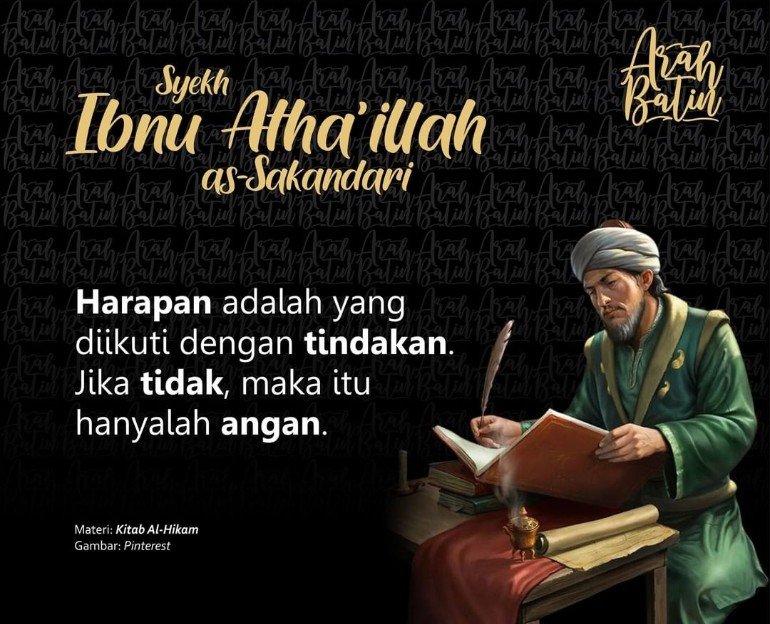 Syekh
Ibnu Atha'illah
as-Sakandari
Arah
Batin
Harapan adalah yang
diikuti dengan tindakan.
Jika tidak, maka itu
hanyalah angan.
Materi: Kitab Al-Hikam
Gambar: Pinterest